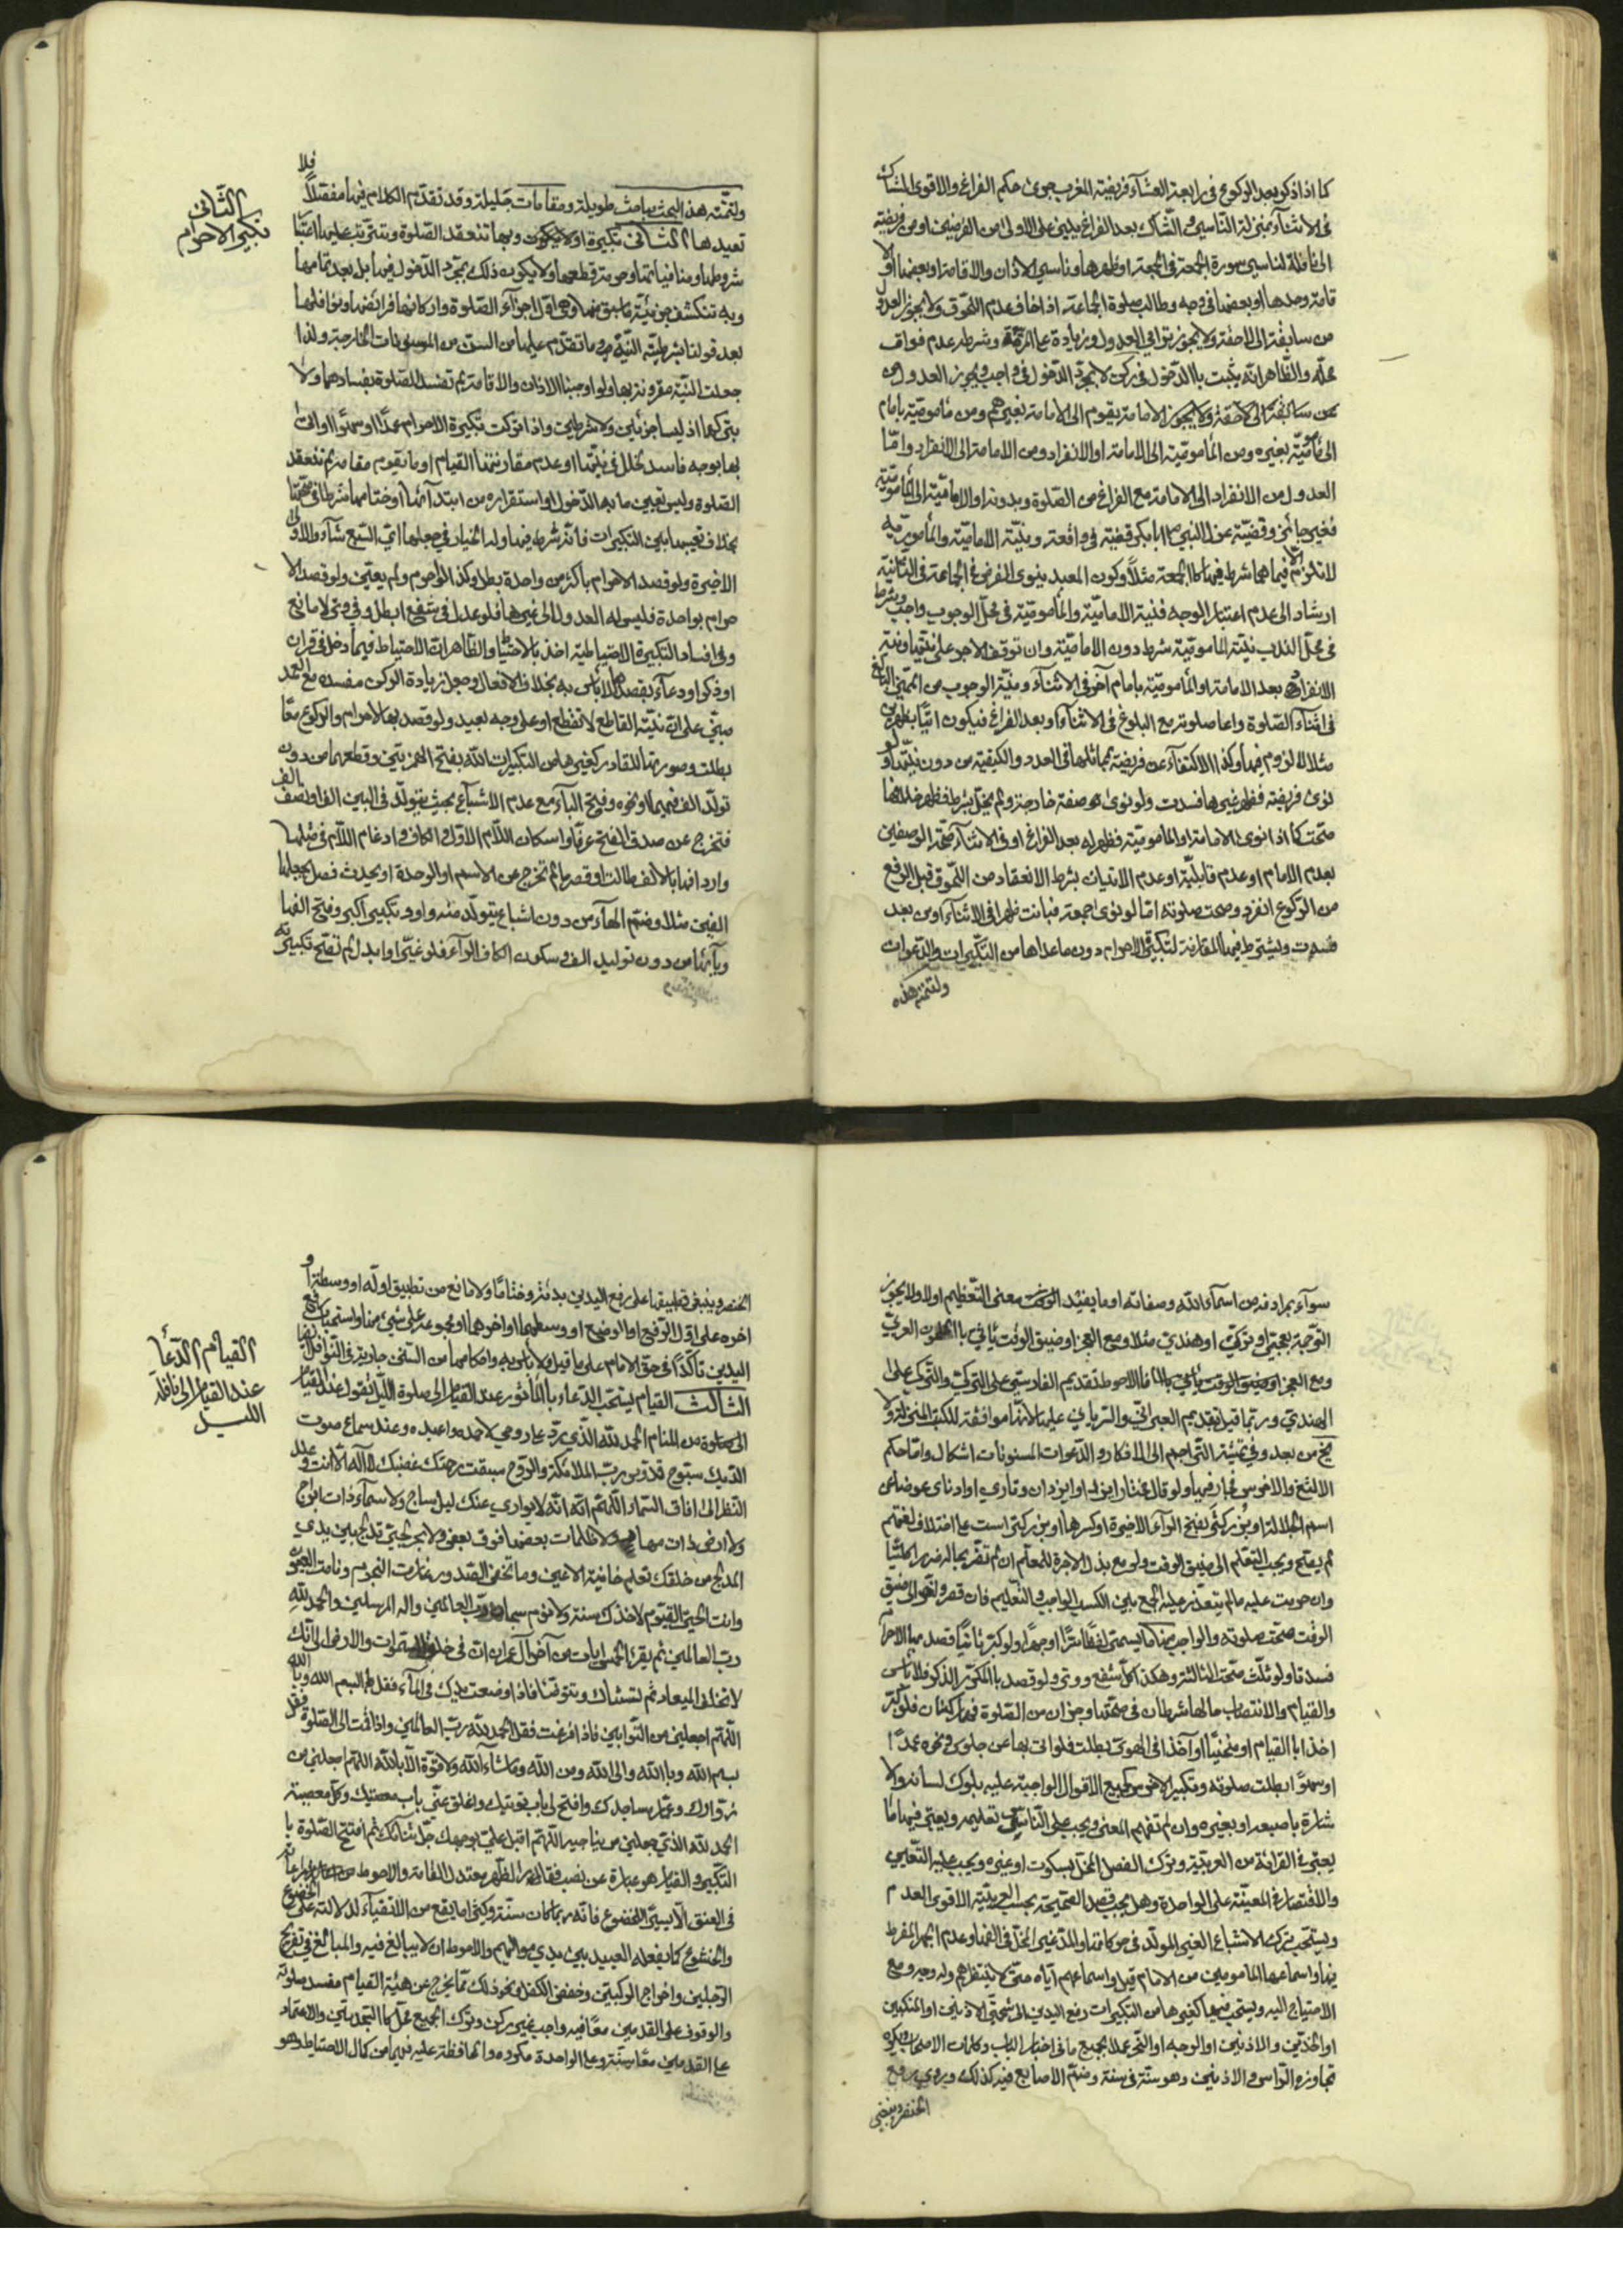 كما اذا ذكر بعد الركوع في رابعة العشاء فريضة المغرب جرى حكم الفراغ والاقوى الشاك
في الاثناء بمنزلة الناسي والشاك بعد الفراغ يبني على الاولى من الفرضين او من فريضة
الى نافلة لناسي سورة الجمعة في الجمعة او ظهرها وناسي الاذان والاقامة او بعضها او الا
قامة وحدها او بعضها في وجه وطالب صلوة الجماعة اذا خاف عدم اللحوق ولا يجوز العدول
من سابقة الى لاحقة ولا يجوز ترامي العدول وشرطه عدم فوات
محله والظاهر انه يثبت بالدخول في ركن لا بمجرد الدخول في واجب ويجوز العدول من
من سابقة الى لاحقة ولا يجوز الامامة بقوم الى الامامة بغيرهم ومن مامومية بامام
الى مامومية بغيره ومن المأمومية الى الامامة او الانفراد ومن الامامة الى الانفراد واما
العدول من الانفراد الى الامامة مع الفراغ من الصلوة وبدونه او الامامية الى المأمومية
فغير جائز وقضية عزل النبي ص ابا بكر قضية في واقعة ونية الامامية والمأمومية
لا تلزم الا فيما هما شرط فيه كالجمعة مثلاً وكون المعيد ينوي الفرض في الجماعة في الثانية
ارشاد الى عدم اعتبار الوجه فنية الامامية والمأمومية في محل الوجوب واجب وشرط
في محل الندب نية المامومية شرط دون الامامية وان توقف الاجر على نيتها ونية
الانفراد بعد الامامة او المأمومية بامام آخر في الاثناء ونية الوجوب من المميز البالغ
في اثناء الصلوة واعا صلوته مع البلوغ في الاثناء او بعد الفراغ فيكون اتيا بظهرين
مثلا لا لزوم فيها وكذا الاكتفاء عن فريضة بمماثلها في العدد والكيفية من دون نيتها ولو
نوى فريضة فظهر غيرها فسدت ولو نوى صفة خارجة ولم يخل بشرط فظهر خلافها
صحت كما اذا نوى الامامة او المامومية فظهر له بعد الفراغ او في الاثناء صحة الوصفين
بعدم الامام او عدم قابليته او عدم الاتيان بشرط الانعقاد من اللحوق قبل الرفع
من الركوع انفرد وصحت صلوته اما لو نوى جمعة فبانت ظهرا في الاثناء او من بعد
فسدت ويشترط فيها المقارنة لتكبيرة الاحرام دون ما عداها من التكبيرات والدعوات
ولتتمة هذه
الثاني
تكبيرة الاحرام
فلا
ولتتمة هذه البحث مباحث طويلة ومقامات جليلة وقد تقدم الكلام فيها مفصلاً
نعيدها الثاني تكبيرة اولا يكون وبها تنعقد الصلوة وتترتب عليها اعتبا
شروطها ومنافياتها وحرمة قطعها ولا يكون ذلك بمجرد الدخول فيها بل بعد تمامها
وبه تنكشف جزئية ما سبق منها وهي اول اجزاء الصلوة واركانها فرائضها ونوافلها
بعد قولنا بشرطية النية وما تقدم عليها من السنن من المسنونات الخارجة ولذا
جعلت النية مقرونة بها ولو اوجبنا الاذان والاقامة لم تفسد الصلوة بفسادهما ولا
بتركهما اذ ليسا جزئين ولا شرطين واذا تركت تكبيرة الاحرام عمداً او سهواً او اتى
بها بوجه فاسد لخلل في نيتها او عدم مقارنتها القيام او ما يقوم مقامه لم تنعقد
الصلوة وليس تعيين ما به الدخول او استقراره من ابتدائها او ختامها شرطا في صحتها
بخلاف تعيينها بين التكبيرات فانه شرط فيها وله الخيار في جعلها اي السبع شاء والاولى
الاخيرة ولو قصد الاحرام باكثر من واحدة بطل وكذا لو احرم ولم يعين ولو قصد الا
حرام بواحدة فليس له العدول الى غيرها فلو عدل في شفع ابطل وفي وتر لا مانع
وفي افساد التكبيرة الاحتياطية اخذ بالاحتياط والظاهر ان الاحتياط فيما دخل في قران
او ذكر او دعاء بقصده لا باس به بخلاف الافعال وجعل زيادة الركن مفسدة مع العمد
مبني على ان نية القاطع لا تقطع او على وجه بعيد ولو قصد بها الاحرام والركوع معًا
بطلت وصورتها للقادر كغيرها من التكبيرات الله بفتح الهمزتين وقطعهما من دون
تولد الف فيهما او نحوه وفتح الباء مع عدم الاشباع بحيث يتولد في البين الف او نصف الف
فتخرج عن صدق الفتح عرفا واسكان اللام الاول والكاف وادغام اللام في مثلها
واردافها بالالف طالت او قصرت ما لم تخرج عن الاسم او الوحدة او يحدث فصل بجعلها
الفين مثلا وضم الهاء من دون اشباع يتولد منه واو وتكبير اكبر وفتح الفها
وبائها من دون توليد الف وسكون الكاف الراء فلو غير او ابدل لم تصح تكبيرته
سواء بمرادفه من اسماء الله وصفاته او ما يفيد معنى التعظيم اولا ولا يجوز
الترجمة بعجمي او تركي او هندي مثلا ومع العجز وضيق الوقت يأتي بالملحون العربي
ومع العجز وضيق الوقت فالاحوط تقديم الفارسي على التركي والتركي على
الهندي وربما قيل بتقديم العبراني والسرياني عليها لانها موافقة للكتب المنزلة ولا
يخ من بعد وفي تمشية التراجم الى الاذكار والدعوات المسنونات اشكال واما حكم
الالثغ والاخرس فجار فيها ولو قال عوضا عن
اسم الجلالة بفتح الراء الاخيرة او كسرها على اختلاف لغتهم
لم يصح ويجب التعلم الى ضيق الوقت ولو مع بذل الاجرة للمعلم ان لم تضر بحاله
وان حرمت عليه ما لم يتعذر عليه الجمع بين الكسب الواجب والتعليم فان قصر واتى الى ضيق
الوقت صحت صلوته والواجب منها ما يسمى لفظا سراً او جهراً ولو كبر ثانياً قصد بها الاحرام
فسدتا ولو ثلث صحت الثالثة وهكذا كل شفع ووتر ولو قصد بالمكرر الذكر فلا باس
والقيام والانتصاب حالها شرطان في صحتها وجزان من الصلوة فلو كبر
اخذا بالقيام او منحنيا او آخذا في الهوى بطلت فلو اتى بها عن جلوس ونحوه عمداً
او سهوًا بطلت صلوته وتكبير الاخرس كجميع الاقوال الواجبة عليه بلوك لسانه والا
شارة باصبعه او بغيره وان لم تفهم المعنى ويجب على الناس تعليمه ويعتبر فيها ما
يعتبر في القرائة من العربية وترك الفصل المخل بسكوت او غيره ويجب عليه التعيين
والاقتصار في المعينة على الواحدة وهل يجب قصد الصحيحة بحسب العربية الاقوى العدم
ويستحب ترك الاشباع الغير المولد في حركاتها والمد غير المخل في الفها وعدم الجهر المفرط
بها واسماعها المامومين من الامام قيل واسماعهم اياه حتى لا ينتظرهم وله وجه ومع
الاحتياج اليه ويستحب فيها كغيرها من التكبيرات رفع اليدين الى شحمتي الاذنين او المنكبين
او الخدين والاذنين او الوجه او النحر عملا بجميع ما في اخبار الباب وكلمات الاصحاب ويكره
تجاوزه الراس والاذنين وهو سنة في سنة وضم الاصابع فيه كذلك وروي رفع
الخنصر وينبغي
القيام الدعاء
عند القيام الى نافلة
الليل
و
الخنصر وينبغي تطبيقها على رفع اليدين بدئا وختامًا ولا مانع من تطبيق اوله او وسطه او
اخره على اول الرفع او الوضع او وسطهما او اخرهما او مجموعه على شيء منها واستحباب رفع
اليدين تأكداً في حق الامام على ما قيل ولا باس به واحكامها من السنن جارية في النوافل ايضا
الثالث القيام يستحب الدعاء بالمأثور عند القيام الى صلوة الليل فيقول عند القيام
الى صلوة من المنام الحمد لله الذي رد علي روحي لاحمده واعبده وعند سماع صوت
الديك سبوح قدوس رب الملائكة والروح سبقت رحمتك غضبك لا اله الا انت وعند
النظر الى افاق السماء اللهم انه لا يواري عنك ليل ساج ولا سماء ذات ابراج
ولا ارض ذات مهاد ولا ظلمات بعضها فوق بعض ولا بحر لجي تدلج بين يدي
المدلج من خلقك تعلم خائنة الاعين وما تخفي الصدور غارت النجوم ونامت العيون
وانت الحي القيوم لا تاخذك سنة ولا نوم سبحان رب العالمين واله المرسلين والحمد لله
رب العالمين ثم يقرء الخمس ايات من آخر آل عمران ان في خلق السموات والارض الى انك
لا تخلف الميعاد ثم تستاك وتتوضا فاذا وضعت يدك في الماء فقل بسم الله وبالله
اللهم اجعلني من التوابين فاذا فرغت فقل الحمد لله رب العالمين واذا قمت الى الصلوة فقل
بسم الله وبالله والى الله ومن الله وما شاء الله ولا قوة الا بالله اللهم اجعلني من
زوارك وعمار مساجدك وافتح لي باب توبتك واغلق عني باب معصيتك وكل معصية
الحمد لله الذي جعلني من يناجيه اللهم اقبل علي بوجهك جل ثناؤك ثم افتتح الصلوة با
التكبير والقيام هو عبارة عن نصب فقار الظهر معتدل القامة والاحوط
في العنق الا يسير الخضوع فانه ربما كانت سنة وكثيرا ما يقع من الاتقياء لدلالته على الخضوع
والخشوع كما يفعله العبيد بين يدي مواليهم والاحوط ان لا يبالغ فيه والمبالغ في تفريج
الرجلين واخراج الركبتين وخفض الكفل ونحو ذلك مما يخرج عن هيئة القيام مفسد صلوته
والوقوف على القدمين معًا فيه واجب غير ركن وترك الجميع مخل كالتجديتين والاعتماد
على القدمين معًا سنة وعلى الواحدة مكروه والمحافظة عليه فيها من كمال الاحتياط وهو